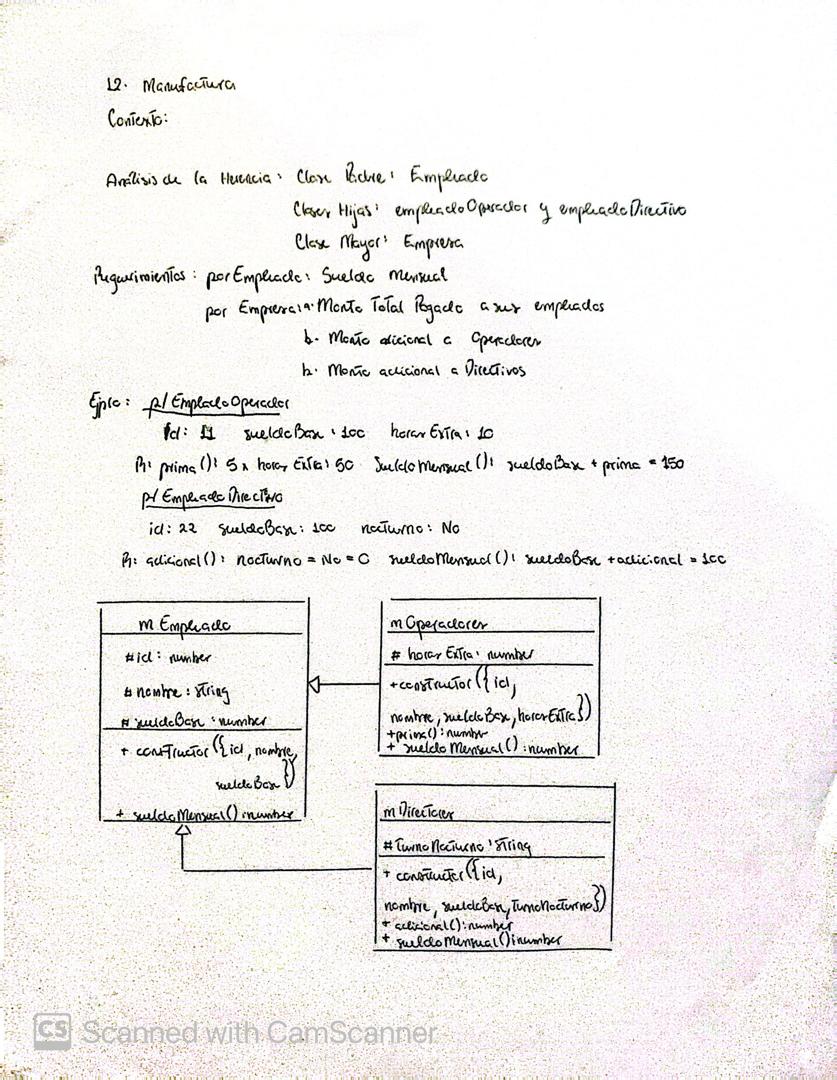 12. Manufactura
Contexto:
Análisis de la Herencia: Clase Padre: Empleado
Clases Hijas: empleadoOperador y empleadoDirectivo
Clase Mayor: Empresa
Requerimientos: por Empleado: Sueldo Mensual
por Empresa: a. Monto Total Pagado a sus empleados
b. Monto adicional a Operadores
b. Monto adicional a Directivos
Ejplo: p/ EmpleadoOperador
Id: 11 sueldoBase: 100 horasExtra: 10
R: prima(): 5 x horasExtra: 50 SueldoMensual(): sueldoBase + prima = 150
p/ EmpleadoDirectivo
id: 22 sueldoBase: 100 nocturno: No
R: adicional(): nocturno = No = 0 sueldoMensual(): sueldoBase + adicional = 100
m Empleado
# id: number
# nombre: string
# sueldoBase: number
+ constructor({id, nombre,
sueldoBase})
+ sueldoMensual(): number
m Operadores
# horasExtra: number
+ constructor({id,
nombre, sueldoBase, horasExtra})
+ prima(): number
+ sueldoMensual(): number
m Directores
# TurnoNocturno: string
+ constructor({id,
nombre, sueldoBase, TurnoNocturno})
+ adicional(): number
+ sueldoMensual(): number
CS Scanned with CamScanner